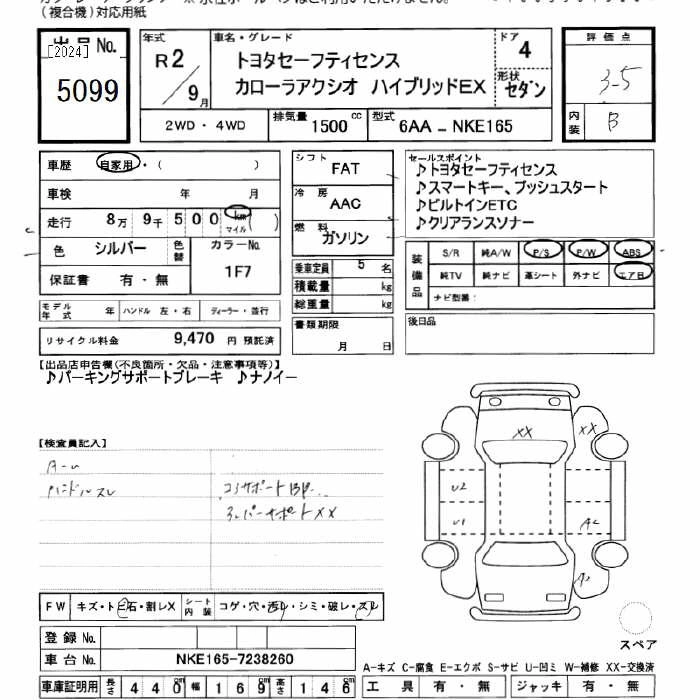 (複合機)対応用紙
出品 No.
[2024]
5099
年式
R2/9月
車名・グレード
トヨタセーフティセンス
カローラアクシオ ハイブリッドEX
ドア
4
形状
セダン
2WD・4WD
排気量 1500 cc
型式 6AA - NKE165
評価点
3-5
内装 B
車歴 自家用・( )
車検 年 月
走行 8万 9千 5 0 0 km マイル ( )
色 シルバー 色替
カラーNo.
1F7
保証書 有・無
シフト FAT
冷房 AAC
燃料 ガソリン
乗車定員 5 名
積載量 kg
総重量 kg
書類期限
月 日
セールスポイント
♪トヨタセーフティセンス
♪スマートキー、プッシュスタート
♪ビルトインETC
♪クリアランスソナー
装備品
S/R 純A/W P/S P/W ABS
純TV 純ナビ 革シート 外ナビ エアB
ナビ型番:
後日品
モデル年式 年 ハンドル 左・右 ディーラー・並行
リサイクル料金 9,470 円 預託済
【出品店申告欄(不良箇所・欠品・注意事項等)】
♪パーキングサポートブレーキ ♪ナノイー
【検査員記入】
ハンドルスレ
コアサポート
XX
XX
XX
U2
U1
A2
FW キズ・トビ石・割レX シート内装 コゲ・穴・汚レ・シミ・破レ・スレ
登録 No.
車台 No. NKE165-7238260
スペア
A-キズ C-腐食 E-エクボ S-サビ U-凹ミ W-補修 XX-交換済
車庫証明用 長さ 440 幅 169 高さ 146
工具 有・無 ジャッキ 有・無